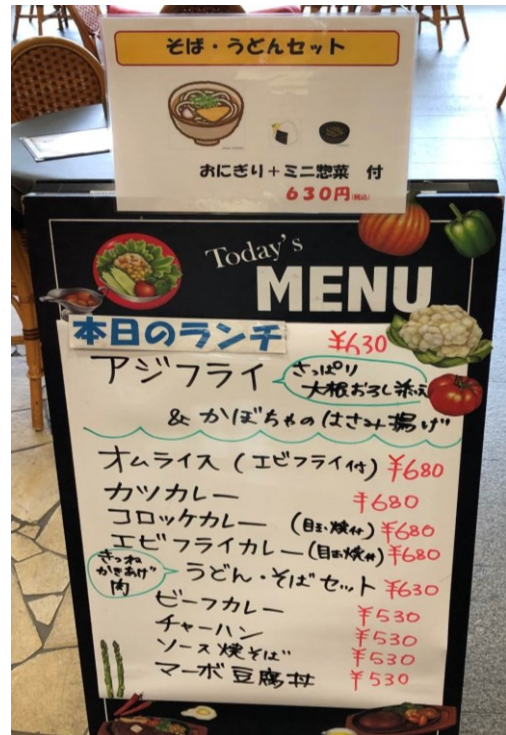 そば・うどんセット
おにぎり+ミニ惣菜 付
630円(税込)
Today's
MENU
本日のランチ ¥630
アジフライ
さっぱり
大根おろし添え
& かぼちゃのはさみ揚げ
オムライス (エビフライ付) ¥680
カツカレー ¥680
コロッケカレー (目玉焼付) ¥680
エビフライカレー (目玉焼付) ¥680
きつね
かきあげ
肉
うどん・そばセット ¥630
ビーフカレー ¥530
チャーハン ¥530
ソース焼そば ¥530
マーボ豆腐丼 ¥530